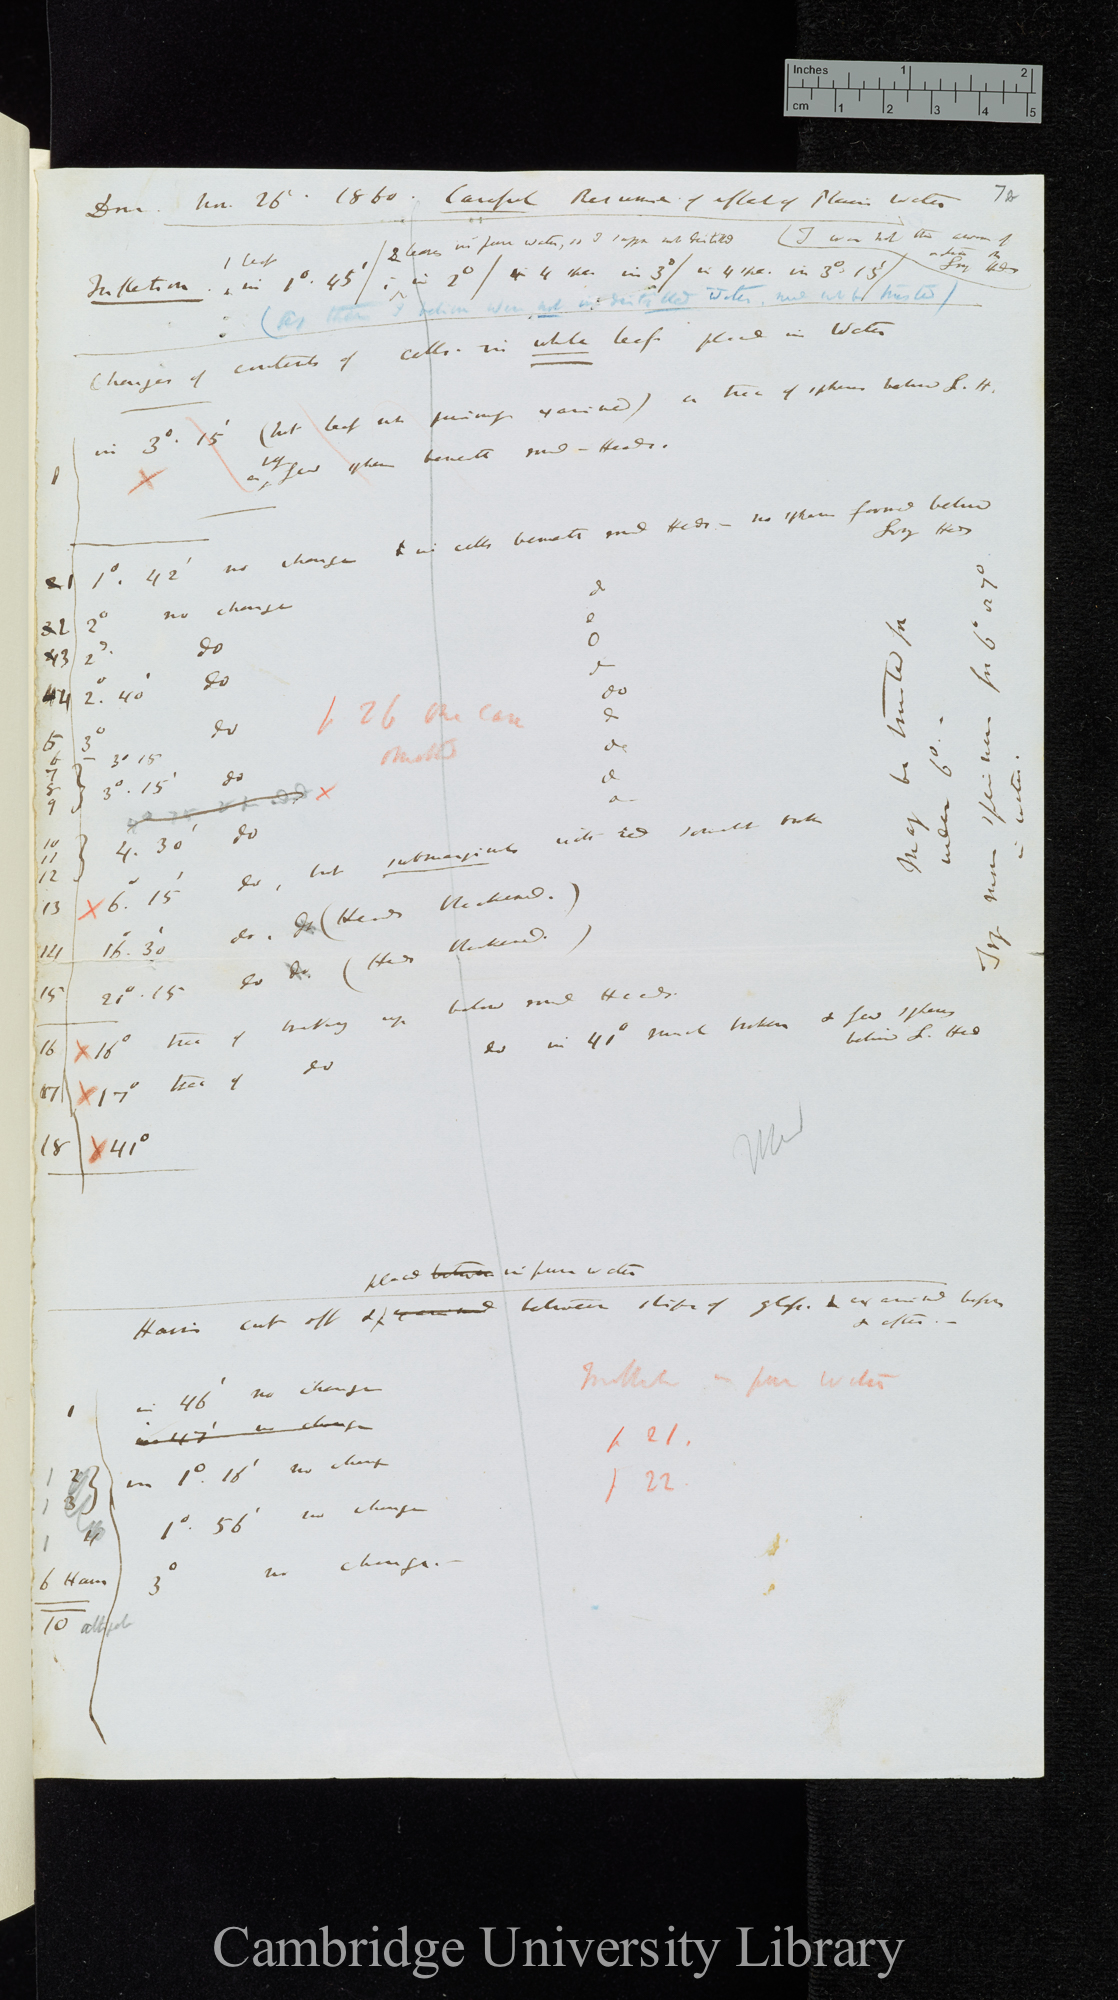 Inches 1 2
cm 1 2 3 4 5
Nov. 26. 1860. Careful Resume of effect of Plain Water
1 leaf
2 leaves in pure water, as I suppose not distilled (I was not then aware of action on Long Heds
Inflection. in 1°. 45' / in 2° / in 4 in 3° / in 4 in 3°. 15' /
( these I believe were not in distilled water, and not to be trusted )
Changes of contents of cells in whole leaf placed in Water
1 in 3°. 15' (but leaf not previously examined) a trace of spheres below L. H.
a very few spheres beneath md-Heads.
1 1°. 42' no change in cells beneath md Heds - no spheres formed below Long Heds
2 2° no change do
3 2°. do
4 2°. 40' do
do
5 3° do
6 3° 15
7
8 3°. 15' do
9
p 26 One case omitted
10
11 4. 30' do
12
13 X 6°. 15' do, but submarginals with red somewhat broken
14 16°. 30' do. do (Heads blackened.)
15 21°. 15 do do. (Heds blackened.)
16 X 16° trace of breaking up below md Heads.
17 X 17° trace of do do in 41° much broken & few spheres below L. Hed
18 X 41°
May be trusted for under 6°. -
Try more specimens for 6° or 7° in water.
placed between in pure water
Hairs cut off & examined between strips of glass. & examined before & after. -
1 in 46' no change
in 47' no change
1 2 in 1°. 16' no change
1 3
1 4 1°. 56' no change
6 Hairs 3° no change. -
10 altogether
Inflection in pure water
p 21.
p 22.
Cambridge University Library